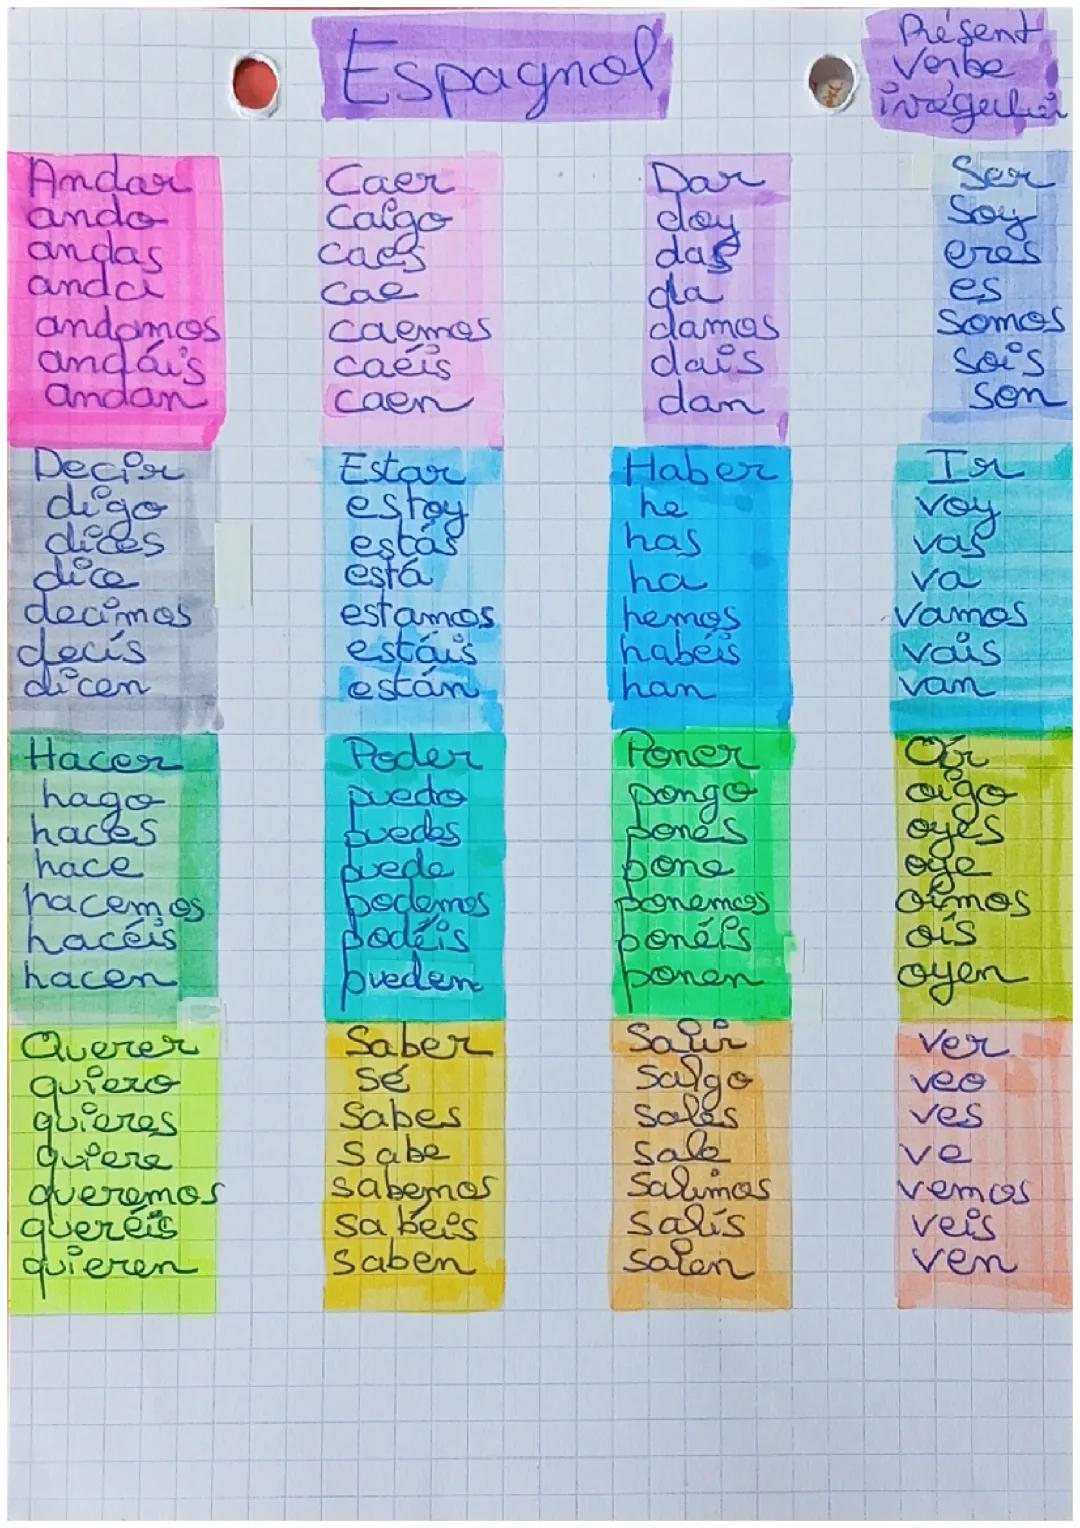 Espagnol
Présent
Verbe
irrégulier
Andar
ando
andas
anda
andamos
andáis
andan
Caer
Caigo
caes
cae
caemos
caéis
caen
Dar
doy
das
da
damos
dais
dan
Ser
Soy
eres
es
somos
sois
son
Decir
digo
dices
dice
decimos
decís
dicen
Estar
estoy
estás
está
estamos
estáis
están
Haber
he
has
ha
hemos
habéis
han
Ir
voy
vas
va
vamos
vais
van
Hacer
hago
haces
hace
hacemos
hacéis
hacen
Poder
puedo
puedes
puede
podemos
podéis
pueden
Poner
pongo
pones
pone
ponemos
ponéis
ponen
Oír
oigo
oyes
oye
oímos
oís
oyen
Querer
quiero
quieres
quiere
queremos
queréis
quieren
Saber
sé
Sabes
Sabe
sabemos
sabéis
saben
Salir
salgo
sales
sale
salimos
salís
salen
Ver
veo
ves
ve
vemos
veis
ven